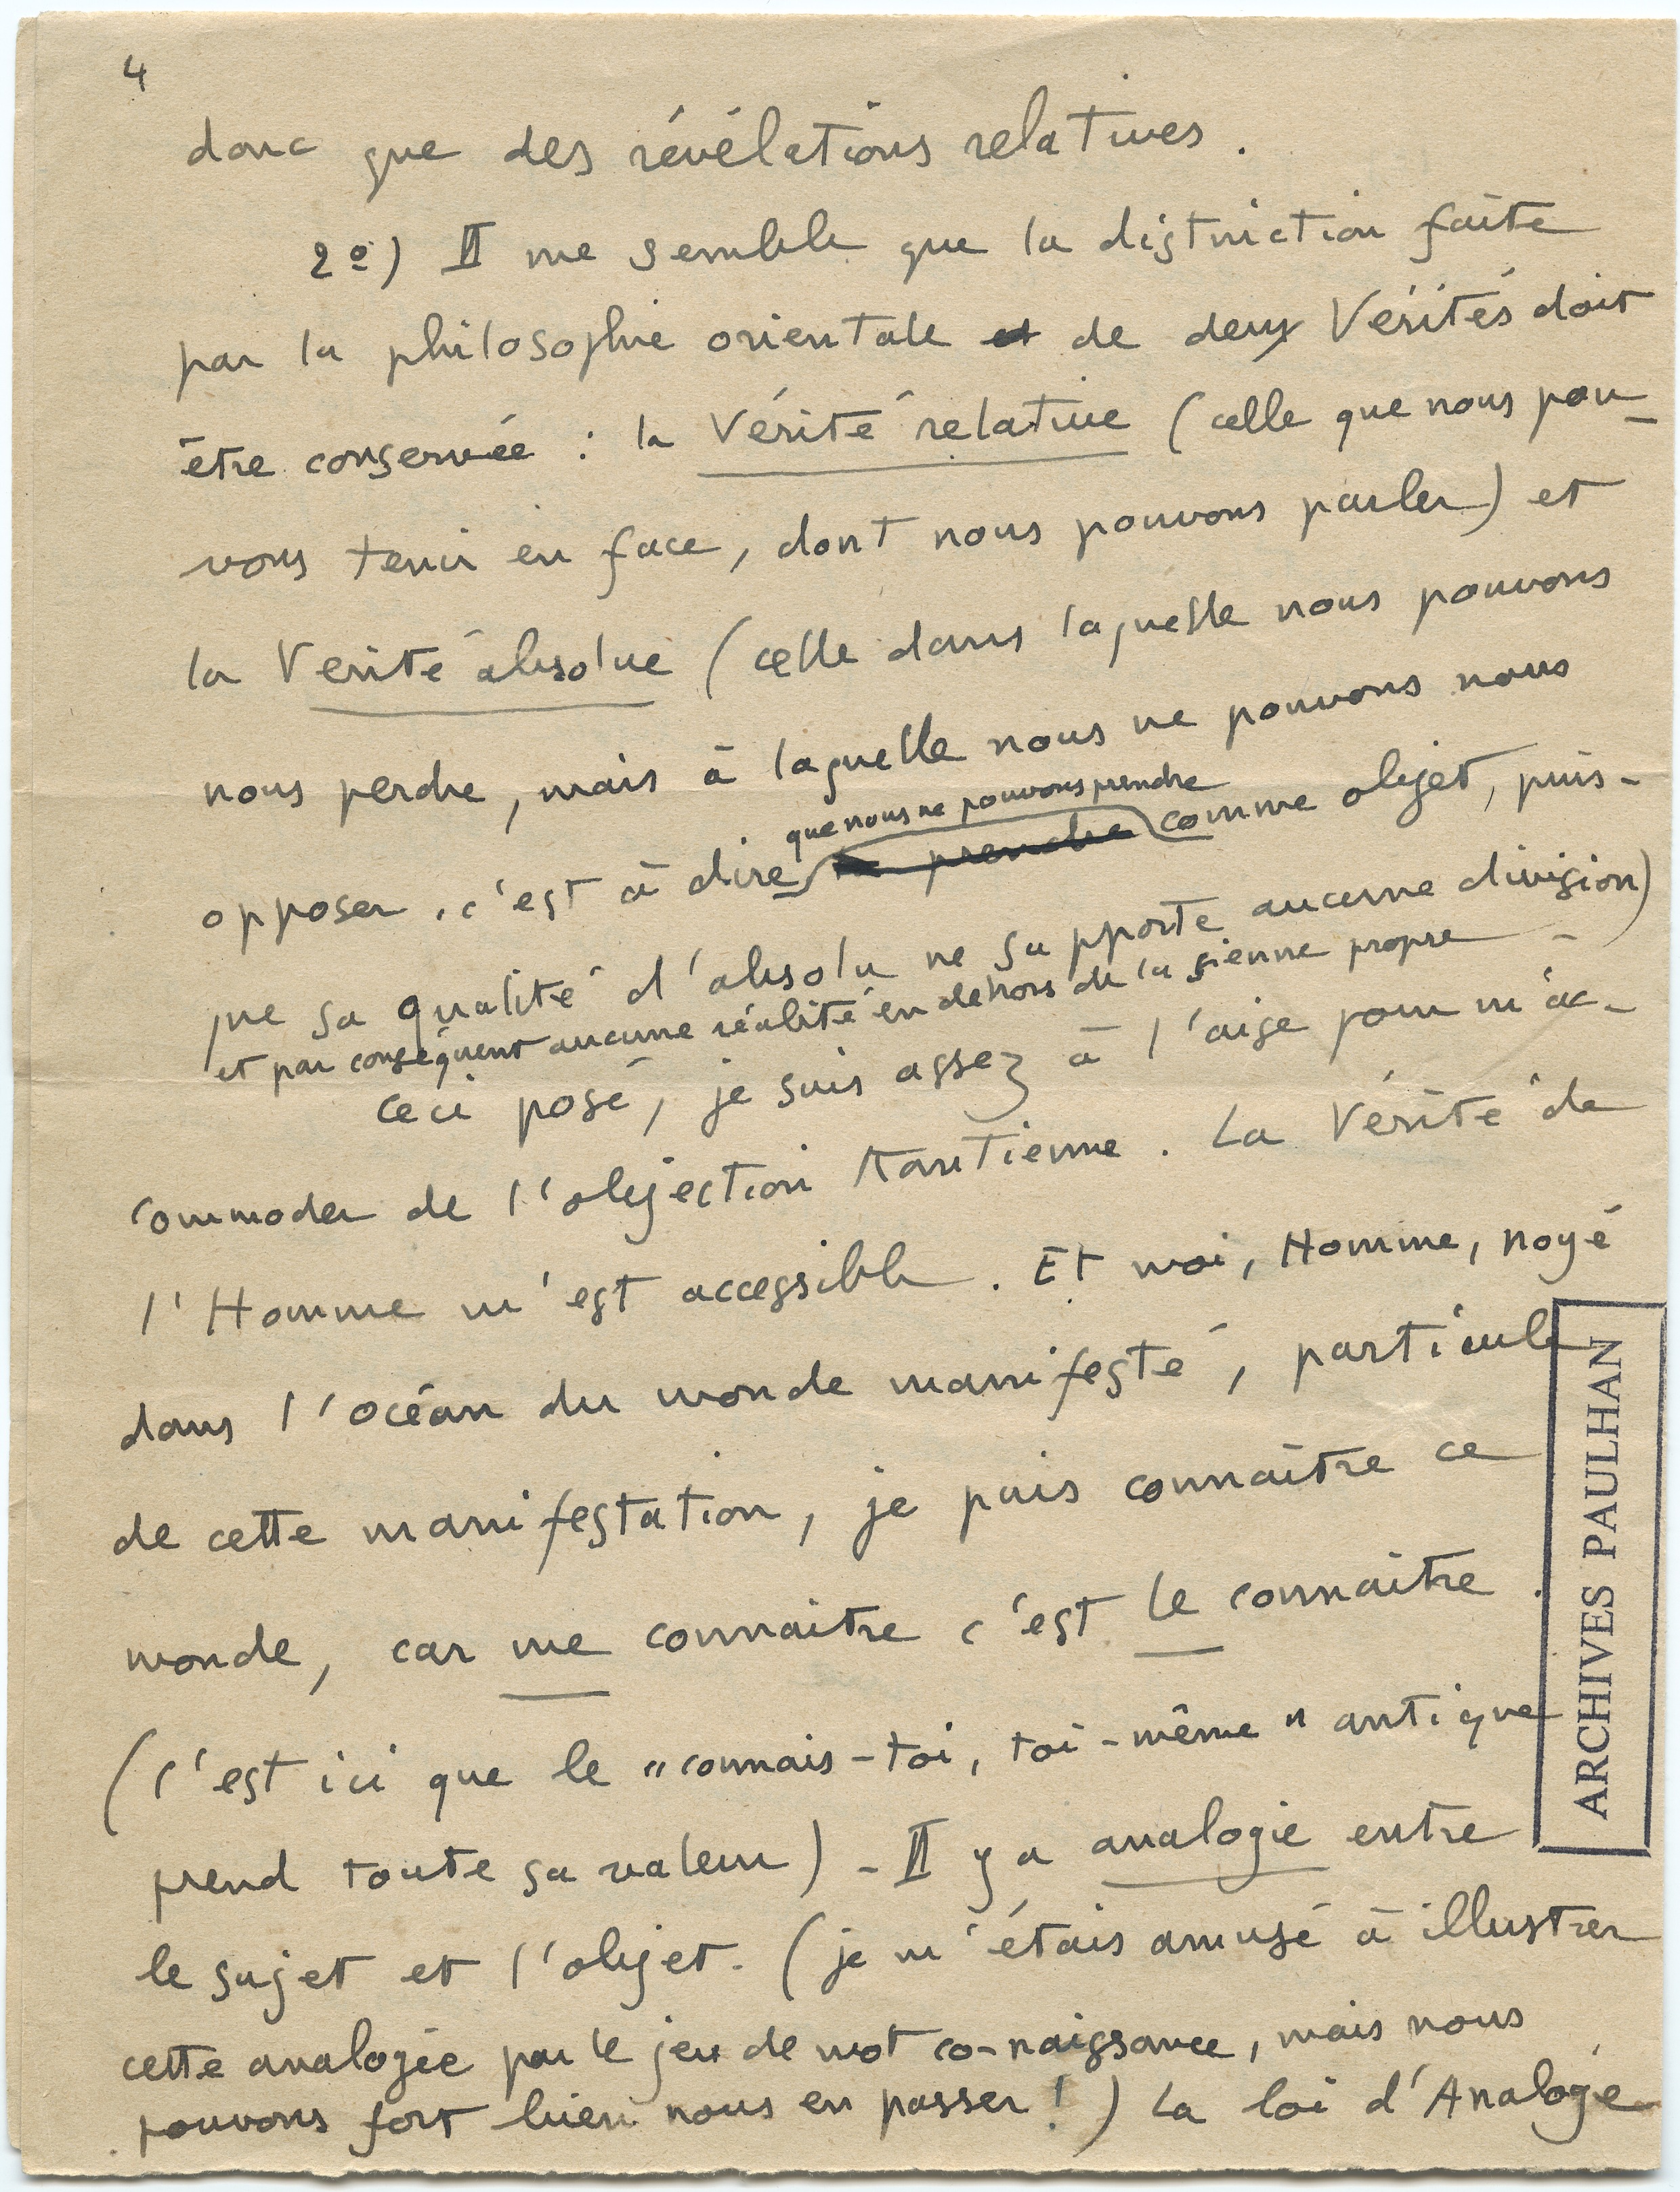 4
donc que des révélations relatives.
2º) Il me semble que la distinction faite
par la philosophie orientale et de deux Vérités doit
être conservée : la Vérité relative (celle que nous pou-
vons tenir en face, dont nous pouvons parler) et
la Vérité absolue (celle dans laquelle nous pouvons
nous perdre, mais à laquelle nous ne pouvons nous
que nous ne pouvons prendre
opposer, c'est à dire prendre comme objet, puis-
que sa qualité d'absolu ne supporte aucune division)
et par conséquent aucune réalité en dehors de la sienne propre -
Ceci posé, je suis assez à l'aise pour m'ac-
commoder de l'objection Kantienne. La Vérité de
l'Homme m'est accessible. Et moi, Homme, noyé
dans l'océan du monde manifesté, particule
de cette manifestation, je puis connaître ce
monde, car me connaitre c'est le connaitre.
(c'est ici que le "connais-toi, toi-même" antique
prend toute sa valeur) - Il y a analogie entre
le sujet et l'objet. (je m'étais amusé à illustrer
cette analogie par le jeu de mot co-naissance, mais nous
pouvons fort bien nous en passer!) La loi d'Analogie
ARCHIVES PAULHAN